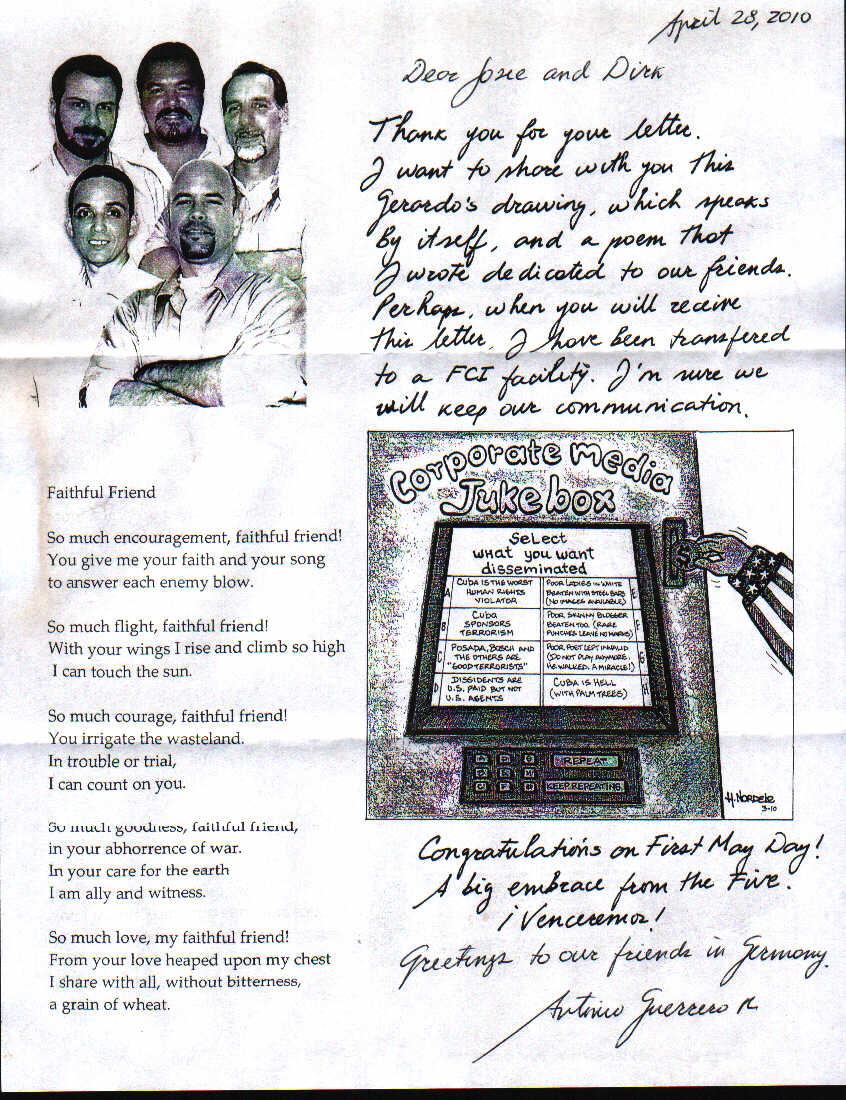 April 28, 2010
Dear Josie and Dirk
Thank you for your letter.
I want to share with you this
Gerardo's drawing, which speaks
By itself, and a poem that
I wrote dedicated to our friends.
Perhaps, when you will receive
this letter, I have been transfered
to a FCI facility. I'm sure we
will keep our communication.
Faithful Friend
So much encouragement, faithful friend!
You give me your faith and your song
to answer each enemy blow.
So much flight, faithful friend!
With your wings I rise and climb so high
I can touch the sun.
So much courage, faithful friend!
You irrigate the wasteland.
In trouble or trial,
I can count on you.
So much goodness, faithful friend,
in your abhorrence of war.
In your care for the earth
I am ally and witness.
So much love, my faithful friend!
From your love heaped upon my chest
I share with all, without bitterness,
a grain of wheat.
Corporate media
Jukebox
Select
what you want
disseminated
A
CUBA IS THE WORST
HUMAN RIGHTS
VIOLATOR
B
Cuba
SPONSORS
TERRORISM
C
POSADA, BOSCH AND
THE OTHERS ARE
"GOOD TERRORISTS"
D
DISSIDENTS ARE
U.S. PAID BUT NOT
U.S. AGENTS
E
POOR LADIES IN WHITE
BEATEN WITH STEEL BARS
(NO IMAGES AVAILABLE)
F
POOR SKINNY BLOGGER
BEATEN TOO (RARE
PUNCHES LEAVE NO MARKS)
G
POOR POET LEFT INVALID
(DO NOT PLAY ANYMORE.
HE WALKED. A MIRACLE!)
H
CUBA IS HELL
(WITH PALM TREES)
$
REPEAT
KEEP REPEATING
H. NORDELO
3-10
Congratulations on First May Day!
A big embrace from the Five.
¡Venceremos!
Greetings to our friends in Germany.
Antonio Guerrero R